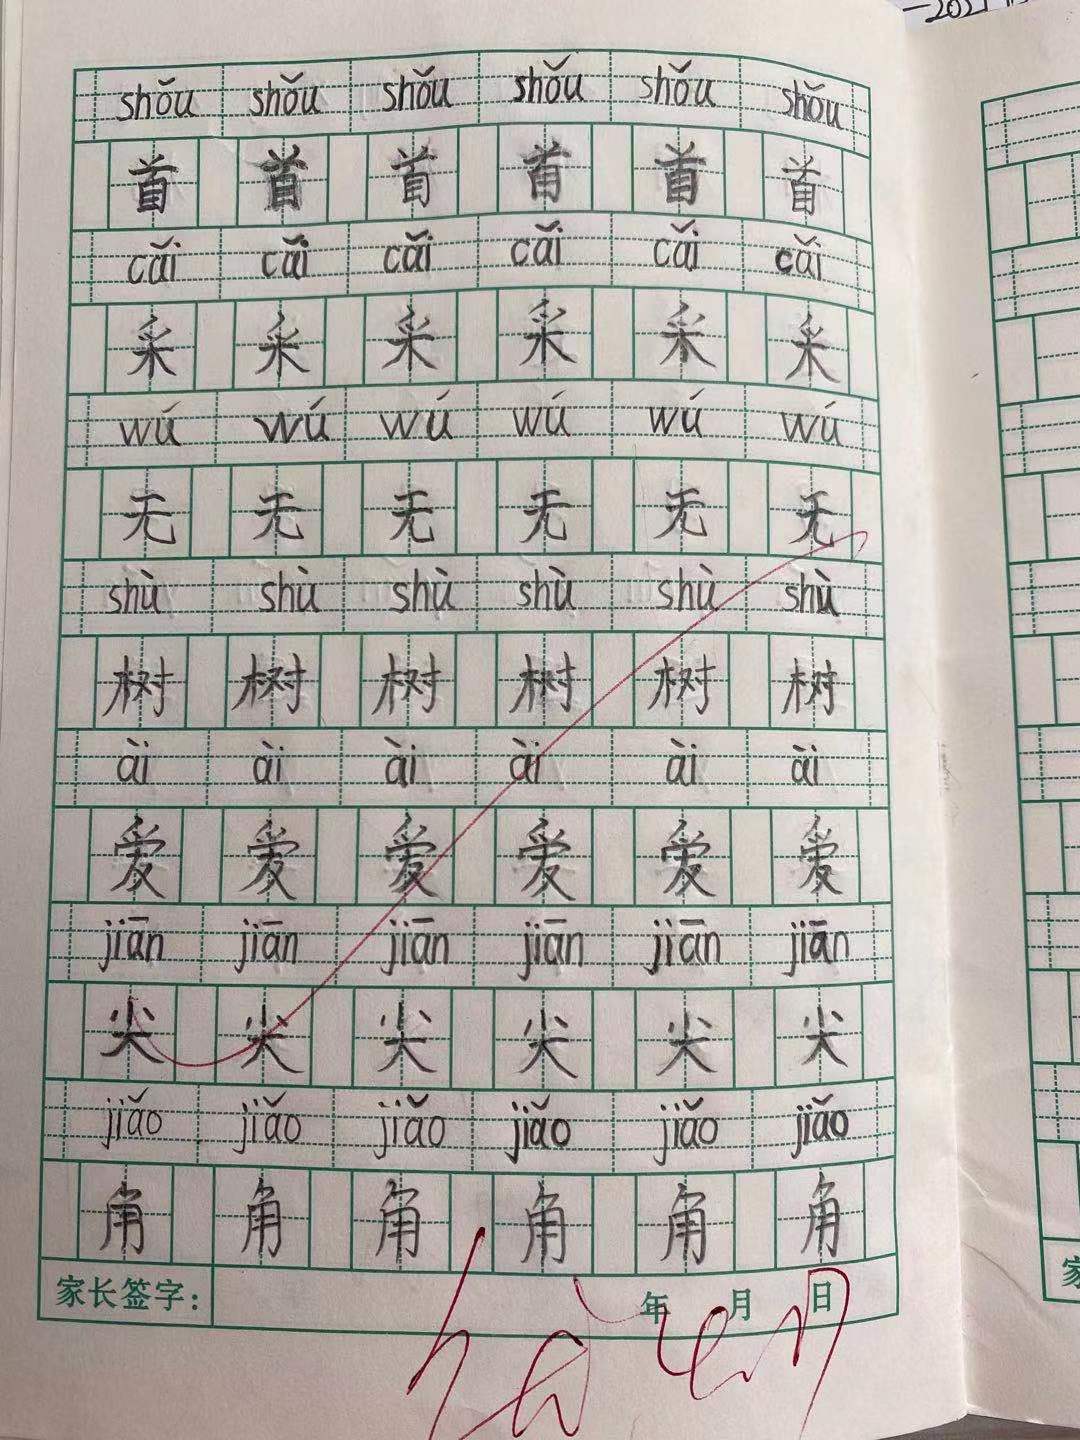 shǒu shǒu shǒu shǒu shǒu shǒu
首 首 首 首 首 首
cǎi cǎi cǎi cǎi cǎi cǎi
采 采 采 采 采 采
wú wú wú wú wú wú
无 无 无 无 无 无
shù shù shù shù shù shù
树 树 树 树 树 树
ài ài ài ài ài ài
爱 爱 爱 爱 爱 爱
jiān jiān jiān jiān jiān jiān
尖 尖 尖 尖 尖 尖
jiǎo jiǎo jiǎo jiǎo jiǎo jiǎo
角 角 角 角 角 角
家长签字: 年 月 日